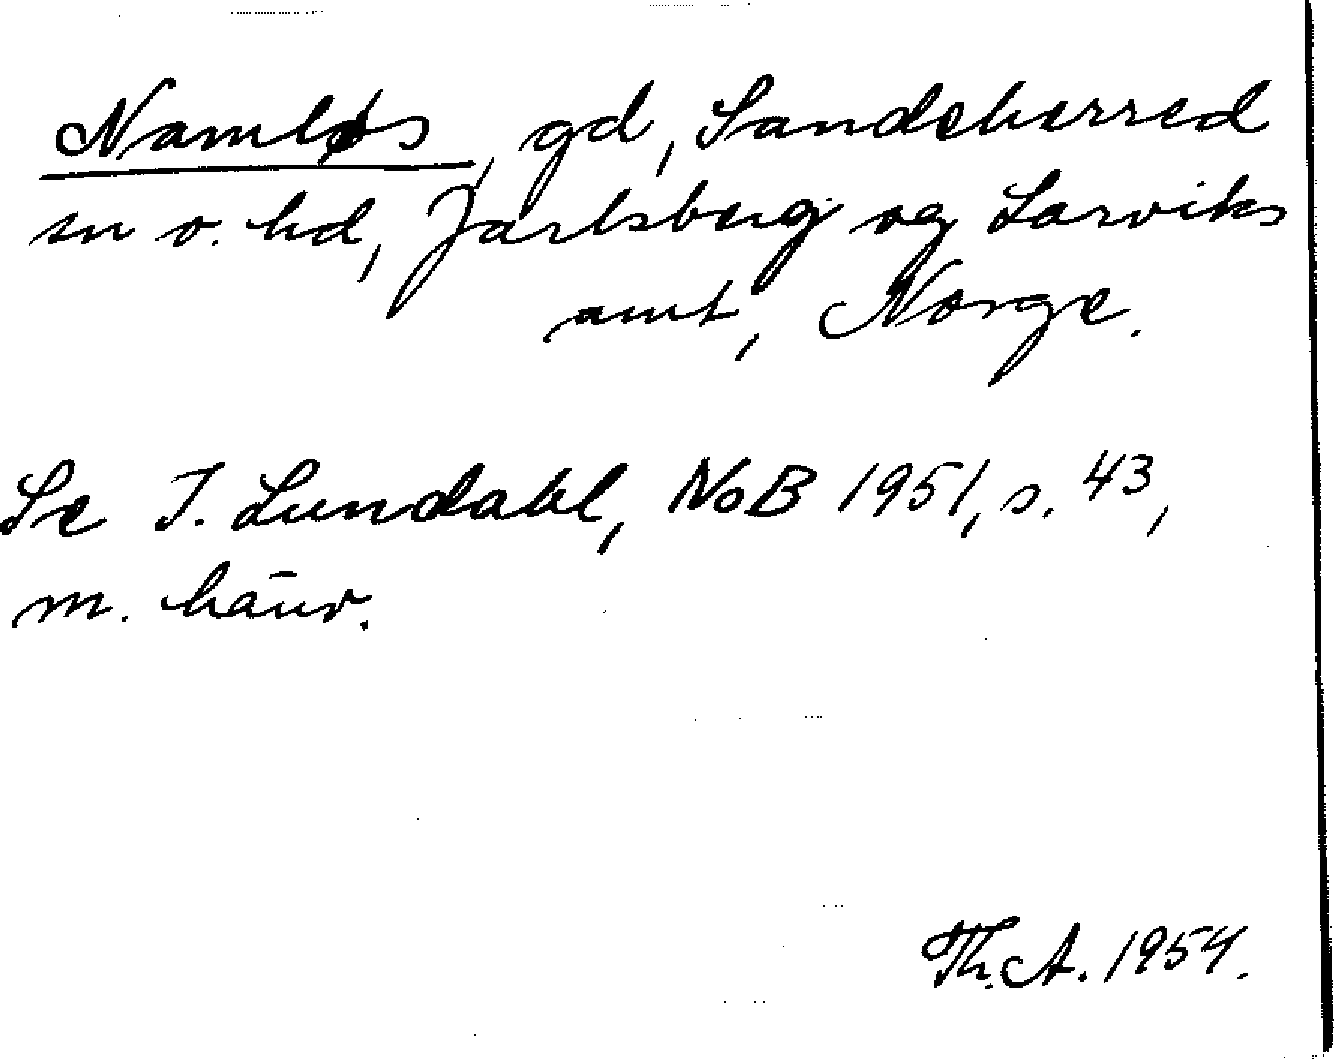 Namløs, gd, Sandeherred
sn o. hd, Jarlsberg og Larviks
amt, Norge.
Se I. Lundahl, NoB 1951, s. 43,
m. hänv.
Th. A. 1954.